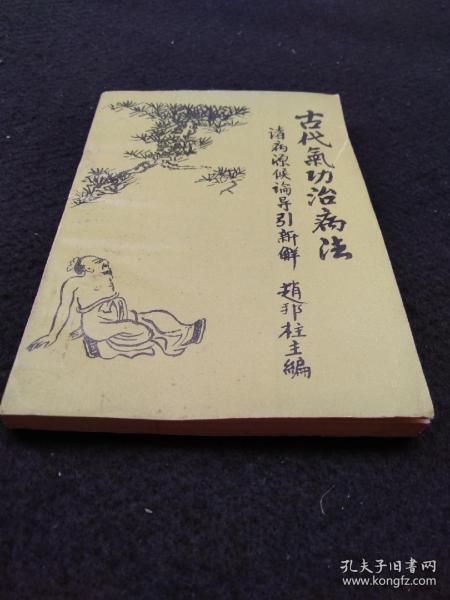 古代氣功治病法
诸病源候论导引新解
趙邦柱主編
孔夫子旧书网
www.kongfz.com